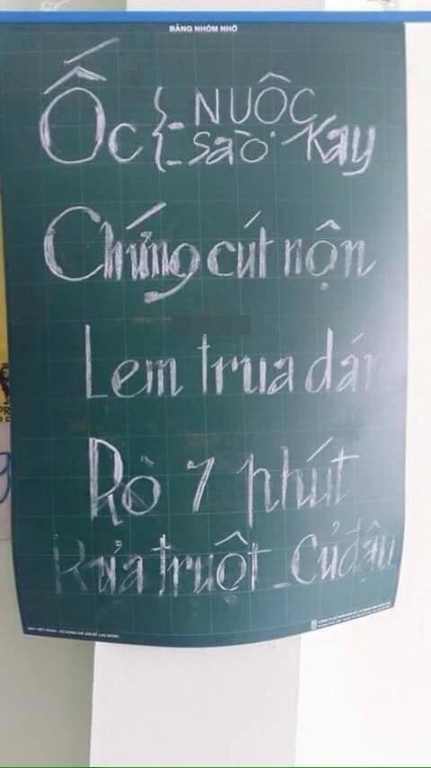 BẢNG NHÓM NHỎ
Ốc { - NUỘC
- Sào Kay
Chứng cút nộn
Lem trua dán
Rò 7 phút
Rửa truột _ củ đậu